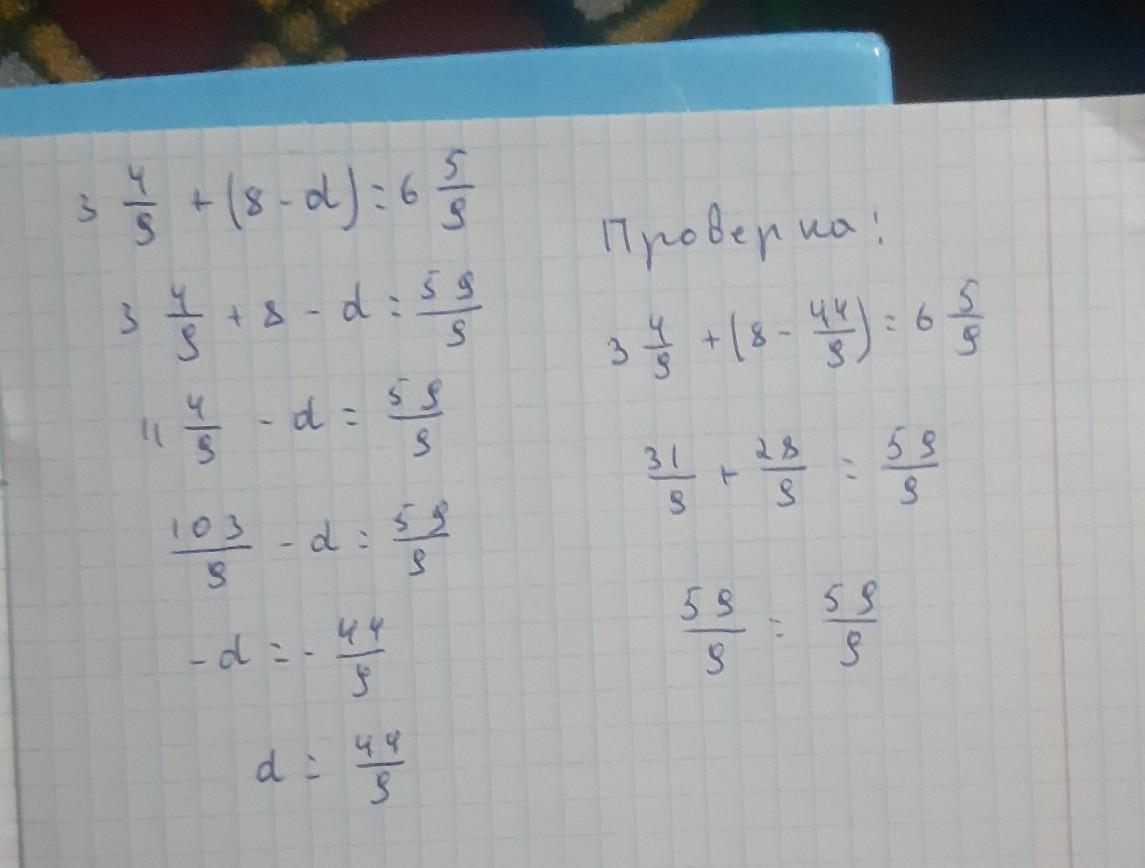 3 4/9 + (8 - d) = 6 5/9
3 4/9 + 8 - d = 59/9
11 4/9 - d = 59/9
103/9 - d = 59/9
-d = - 44/9
d = 44/9
Проверка!
3 4/9 + (8 - 44/9) = 6 5/9
31/9 + 28/9 = 59/9
59/9 = 59/9